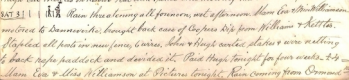 SAT 31 Rain threatening all forenoon, wet afternoon. Mam Eva & Miss Williamson
motored to Dannevirke; brought back case of Coopers Dip from Williams & Kettle.
Stapled all posts in new fence, 6 wires. John & Hugh carted stakes & wire netting
to back rape paddock and divided it. Paid Hugh tonight for four weeks
Mam Eva & Miss Williamson at Pictures tonight. Rain coming from Ormond